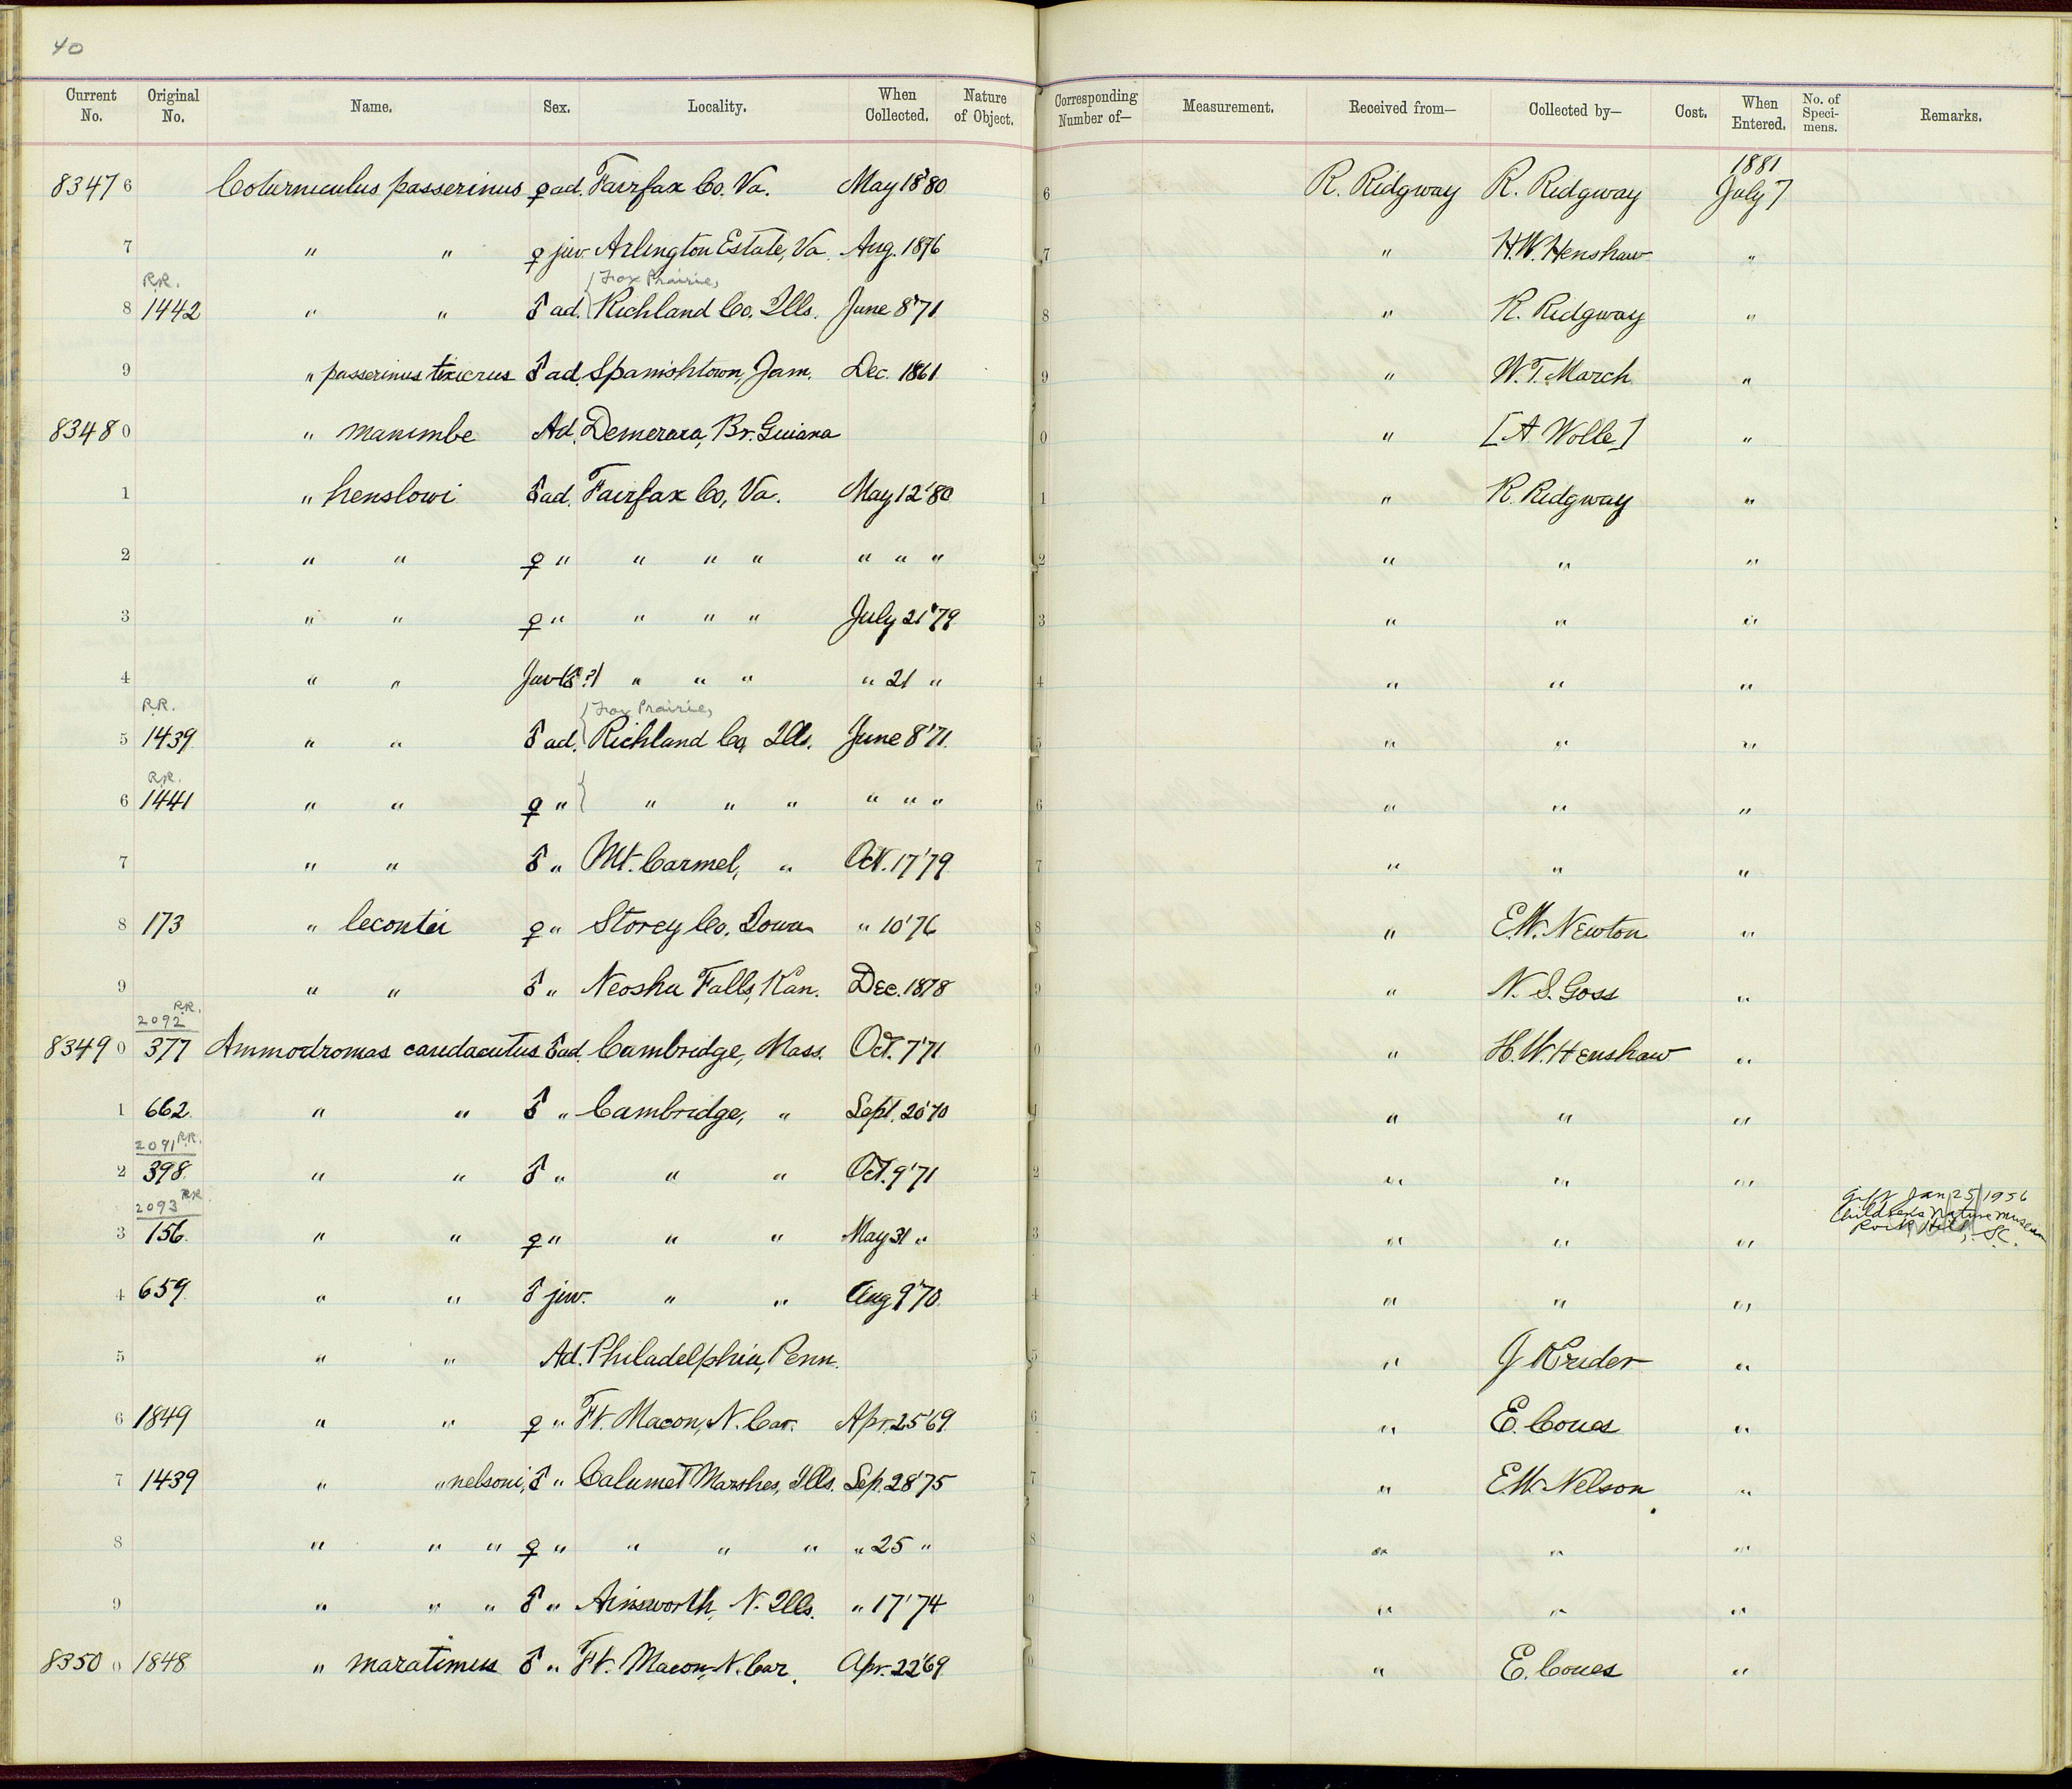 40
Current No. Original No. Name. Sex. Locality. When Collected. Nature of Object. Corresponding Number of— Measurement. Received from— Collected by— Cost. When Entered. No. of Specimens. Remarks.
1881
83476 Coturniculus passerinus ♀ ad. Fairfax Co. Va. May 18'80 6 R. Ridgway R. Ridgway July 7
7 " " ♀ juv. Arlington Estate, Va. Aug. 1876 7 " H.W. Henshaw "
R.R. Fox Prairie,
8 1442 " " ♂ ad. Richland Co. Ills. June 8'71 8 " R. Ridgway "
9 " passerinus tixicrus ♂ ad. Spanishtown, Jam. Dec. 1861 9 " W.T. March "
83480 " manimbe Ad. Demerara, Br. Guiana 0 " [A. Wolle] "
1 " henslowi ♂ ad. Fairfax Co, Va. May 12'80 1 " R. Ridgway "
2 " " ♀ " " " " " " " 2 " " "
3 " " ♀ " " " " July 21'79 3 " " "
4 " " Juv (♂?) " " " " 21 " 4 " " "
R.R. Fox Prairie,
5 1439 " " ♂ ad. Richland Co, Ills. June 8'71. 5 " " "
R.R.
6 1441 " " ♀ " " " " " " " 6 " " "
7 " " ♂ " Mt. Carmel, " Oct. 17'79 7 " " "
8 173 " lecontei ♀ " Storey Co. Iowa " 10'76 8 " E.W. Newton "
9 " " ♂ " Neosha Falls, Kan. Dec. 1878 9 " N. S. Goss "
2092 R.R.
83490 377 Ammodromas caudacutus ♂ ad. Cambridge, Mass. Oct. 7'71 0 " H.W. Henshaw "
1 662 " " ♂ " Cambridge, " Sept. 20'70 1 " " "
2091 R.R.
2 398. " " ♂ " " " Oct. 9'71 2 " " "
2093 RR Gift Jan 25, 1956
Childrens Nature Museum
3 156. " " ♀ " " " May 31 " 3 " " " Rock Hill, S.C.
4 659 " " ♂ juv. " " Aug 9'70. 4 " " "
5 " " Ad. Philadelphia, Penn. 5 " J Krider "
6 1849 " " ♀ " Ft. Macon, N. Car. Apr. 25'69. 6 " E. Coues "
7 1439 " " nelsoni, ♂ " Calumet Marshes, Ills. Sep. 28'75 7 " E.W. Nelson "
8 " " " ♀ " " " " " 25 " 8 " " "
9 " " " ♂ " Ainsworth, N. Ills. " 17'74 9 " " "
83500 1848 " maratimus ♂ " Ft. Macon, N. Car. Apr. 22'69 0 " E. Coues "